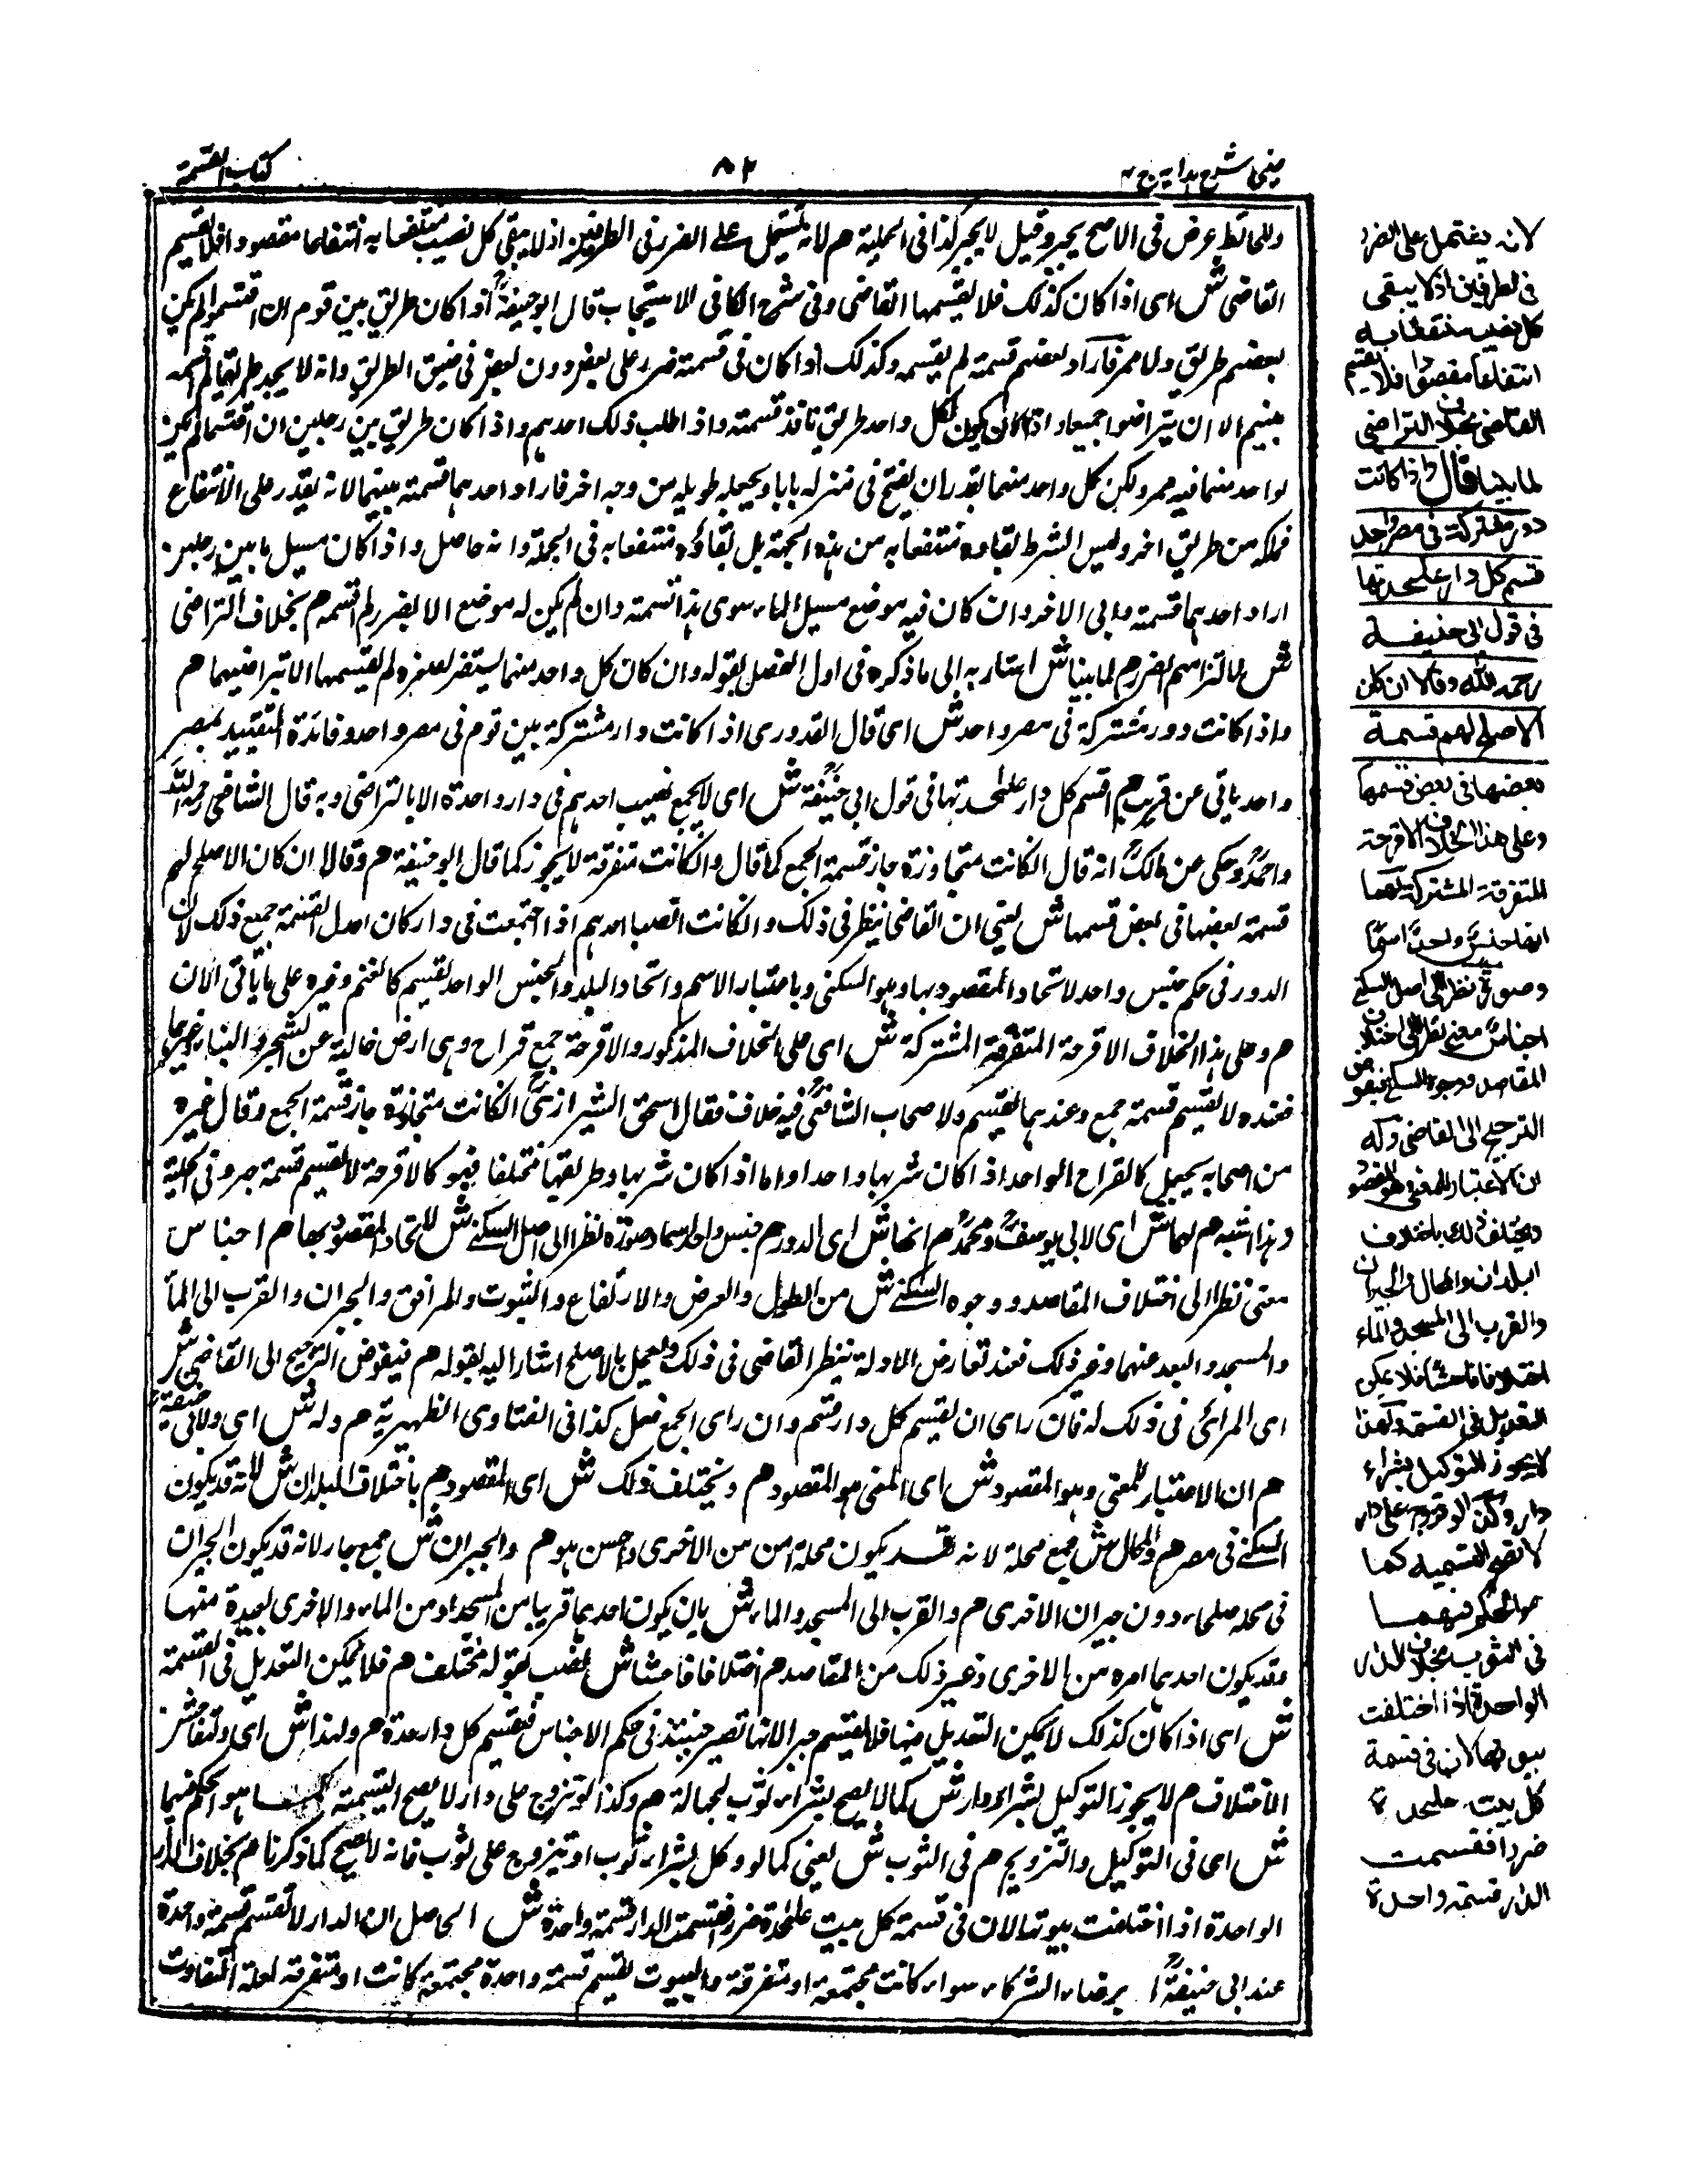 عينى شرح هدايه ج ٣
٨٢
كتاب القسمة
وللحائط عرض فى الاصح يجبر وقيل لا يجبر كذا فى الحلية هم لانه يشتمل على الضرر فى الطرفين اذ لا يبقى كل نصيب منتفعا به انتفاعا مقصودا فلا يقسم
القاضى ش اى اذا كان كذلك فلا يقسمها القاضى وفى شرح الكافى للاسبيجاب قال ابو حنيفة اذا كان طريق بين قوم ان اقتسموا لم يكن
بعضهم طريق ولا ممر فاراد بعضهم قسمة لم يقسمه وكذلك اذا كان فى قسمته ضرر على بعض دون بعض فى ضيق الطريق وانه لا يجد طريقا لم اقسمه
بينهم الا ان يتراضوا جميعا واذا كان يكون لكل واحد طريق نافذ قسمته واذا طلب ذلك احدهم واذا كان طريق بين رجلين ان اقتسما لم يكن
لواحد منهما فيه ممر ولكن كل واحد منهما يقدر ان يفتح فى منزله بابا ويجعله طويله من وجه اخر فاراد احدهما قسمته بينهما لانه يقدر على الانتفاع
فملكه من طريق اخر وليس الشرط بقاءه منتفعا به من هذه الجهة بل بقاؤه منتفعا به فى الجملة وانه حاصل واذا كان مسيل ما بين رجلين
اراد احدهما قسمته وابى الاخر وان كان فيه موضع مسيل الماء سوى هذا قسمته وان لم يكن له موضع الا بضرر لم اقسمه هم بخلاف التراضى
ش لالتزامهم الضرر هم لما بينا ش اشار به الى ما ذكره فى اول الفصل بقوله وان كان كل واحد منهما يستضر لصغره لم يقسمها الا بتراضيهما هم
واذا كانت دور مشتركة فى مصر واحد ش اى قال القدورى اذا كانت دار مشتركة بين قوم فى مصر واحد وفائدة التقييد بمصر
واحد ياتى عن قريب هم اقسم كل دار على حدتها فى قول ابى حنيفة ش اى لا يجمع نصيب احدهم فى دار واحدة الا بالتراضى وبه قال الشافعى رحمه الله
واحمد وحكى عن مالك انه قال ان كانت متجاورة جاز قسمة الجمع كما قال وان كانت متفرقة لا يجوز كما قال ابو حنيفة هم وقالا ان كان الاصلح لهم
قسمة بعضها فى بعض قسمها ش يعنى ان القاضى ينظر فى ذلك وان كانت انصباء احدهم اذا اجتمعت فى دار كان اعدل لقسمة جميع ذلك لان
الدور فى حكم جنس واحد لاتحاد المقصود بها وهو السكنى وباعتبار الاسم واتحاد البلد والجنس الواحد يقسم كالغنم وغيره على ما ياتى الان
هم وعلى هذا الخلاف الاقرحة المتفرقة المشتركة ش اى على الخلاف المذكور والاقرحة جمع قراح وهى ارض خالية عن الشجر والبناء وغيرهما
فعنده لا يقسم قسمة جمع وعندهما يقسم ولاصحاب الشافعى فيه خلاف فقال اسحق الشيرازى ان كانت متجاورة جاز قسمة الجمع وقال غيره
من اصحابه يجعل كالقراح الواحد اذا كان شربها واحدا واما اذا كان شربها وطريقها مختلفا فهو كالاقرحة لا يقسم قسمة جبر وفى الحلية
وهذا اشبه هم لهما ش اى لابى يوسف ومحمد هم انها ش اى الدور هم جنس واحد اسما وصورة نظرا الى اصل السكنى ش لاتحاد المقصود بها هم اجناس
معنى نظرا الى اختلاف المقاصد ووجوه السكنى ش من الطول والعرض والارتفاع والثبوت والمرافق والجيران والقرب الى الماء
والمسجد والبعد عنهما وغير ذلك فعند تعارض الادلة ينظر القاضى فى ذلك ويعمل بالاصلح اشار اليه بقوله هم فيفوض الترجيح الى القاضى ش
اى المرائى فى ذلك له فان راى ان يقسم كل دار قسم وان راى الجمع فعل كذا فى الفتاوى الظهيرية هم وله ش اى ولابى حنيفة
هم ان الاعتبار للمعنى وهو المقصود ش اى المعنى هو المقصود هم ويختلف ذلك ش اى المقصود هم باختلاف البلدان ش لانه قد يكون
السكنى فى مصر هم والمحال ش جمع محلة لانه قد يكون محلة امن من الاخرى واحسن هو هم والجيران ش جمع جار لانه قد يكون الجيران
فى محلة صلحاء دون جيران الاخرى هم والقرب الى المسجد والماء ش بان يكون احدهما قريبا من المسجد او من الماء والاخرى بعيدة منها
وقد يكون احدهما امره من الاخرى وغير ذلك من المقاصد هم اختلافا فاحشا ش نصب بقوله مختلف هم فلا يمكن التعديل فى القسمة
ش اى اذا كان كذلك لا يمكن التعديل فيها فلا يقسم جبرا لانها تصير حينئذ فى حكم الاجناس فيقسم كل دار عدة هم ولهذا ش اى ولتفاحش
الاختلاف هم لا يجوز التوكيل بشراء دار ش كما لا يصح بشراء ثوب لجهالة هم وكذا لو تزوج على دار لا يصح التسمية كما هو الحكم فيهما
ش اى فى التوكيل والتزويج هم فى الثوب ش يعنى كما لو وكل بشراء ثوب او تزوج على ثوب فانه لا يصح كما ذكرنا هم بخلاف الدار
الواحدة اذا اختلفت بيوتها لان فى قسمة كل بيت على حدة ضرر فقسمت الدار قسمة واحدة ش الحاصل ان الدار لا تقسم قسمة واحدة
عند ابى حنيفة ا برضاء الشركاء سواء كانت مجتمعة او متفرقة والبيوت تقسم قسمة واحدة مجتمعة كانت او متفرقة لعلة التفاوت
لانه يشتمل على الضرر
فى الطرفين اذ لا يبقى
كل نصيب منتفعا به
انتفاعا مقصودا فلا يقسم
القاضى بخلاف التراضى
لما بينا قال واذا كانت
دور مشتركة فى مصر واحد
قسم كل دار على حدتها
فى قول ابى حنيفة
رحمه الله وقالا ان كان
الاصلح لهم قسمة
بعضها فى بعض قسمها
وعلى هذا الخلاف الاقرحة
المتفرقة المشتركة لهما
انها جنس واحد اسما
وصورة نظرا الى اصل السكنى
اجناس معنى نظرا الى اختلاف
المقاصد ووجوه السكنى فيفوض
الترجيح الى القاضى وله
ان الاعتبار للمعنى وهو المقصود
ويختلف ذلك باختلاف
البلدان والمحال والجيران
والقرب الى المسجد والماء
اختلافا فاحشا فلا يمكن
التعديل فى القسمة ولهذا
لا يجوز التوكيل بشراء
دار وكذا لو تزوج على دار
لا تصح التسمية كما
هو الحكم فيهما
فى الثوب بخلاف الدار
الواحدة اذا اختلفت
بيوتها لان فى قسمة
كل بيت على حدة
ضررا فقسمت
الدار قسمة واحدة